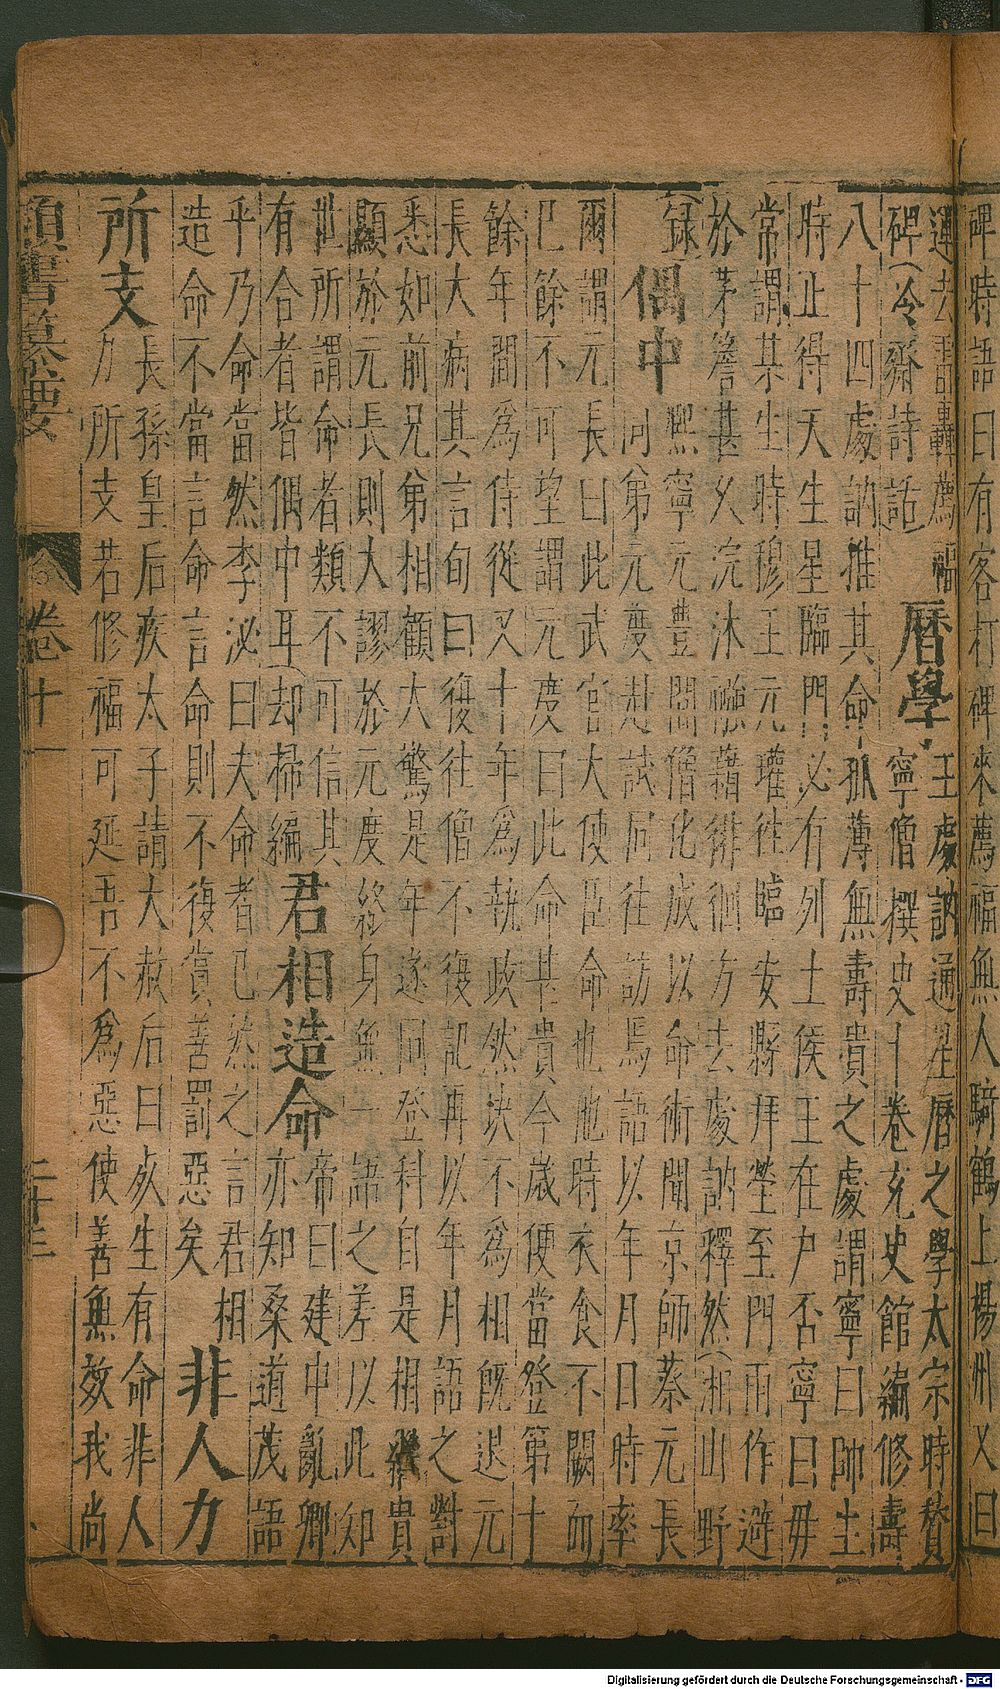 碑時語曰有客打碑來薦福無人騎鶴上揚州又曰
運去雷轟薦福
碑(冷齋詩話)
曆學
王處訥通星曆之學太宗時贊
寧僧撰史十卷充史館編修壽
八十四處訥推其命孤薄無壽貴之處謂寧曰師生
時止得天生星臨門必有列土侯王在户否寧曰毋
常謂某生時穆王元瓘徃臨安縣拜塋至門雨作避
於茅簷甚乆浣沐襁藉徘徊方去處訥釋然(湘山野
録)
偶中
熙寧元豐間僧化成以命術聞京師蔡元長
同弟元度赴試同往訪焉語以年月日時率
爾謂元長曰此武官大使臣命也他時衣食不闕而
巳餘不可望謂元度曰此命甚貴今歲便當登第十
餘年間為侍從又十年為執政然决不為相旣退元
長大病其言旬曰復往僧不復記再以年月語之對
悉如前兄弟相顧大驚是年遂同登科自是相繼貴
顯於元長則大謬於元度終身無一語之差以此知
世所謂命者類不可信其
有合者皆偶中耳(却掃編
君相造命
帝曰建中亂卿
亦知桑道茂語
乎乃命當然李泌曰夫命者已然之言君相
造命不當言命言命則不復賞善罰惡矣
非人力
所支
長孫皇后疾太子請大赦后曰死生有命非人
力所支若修福可延吾不為惡使善無效我尚
類書纂要
卷十一
二十三
Digitalisierung gefördert durch die Deutsche Forschungsgemeinschaft - DFG